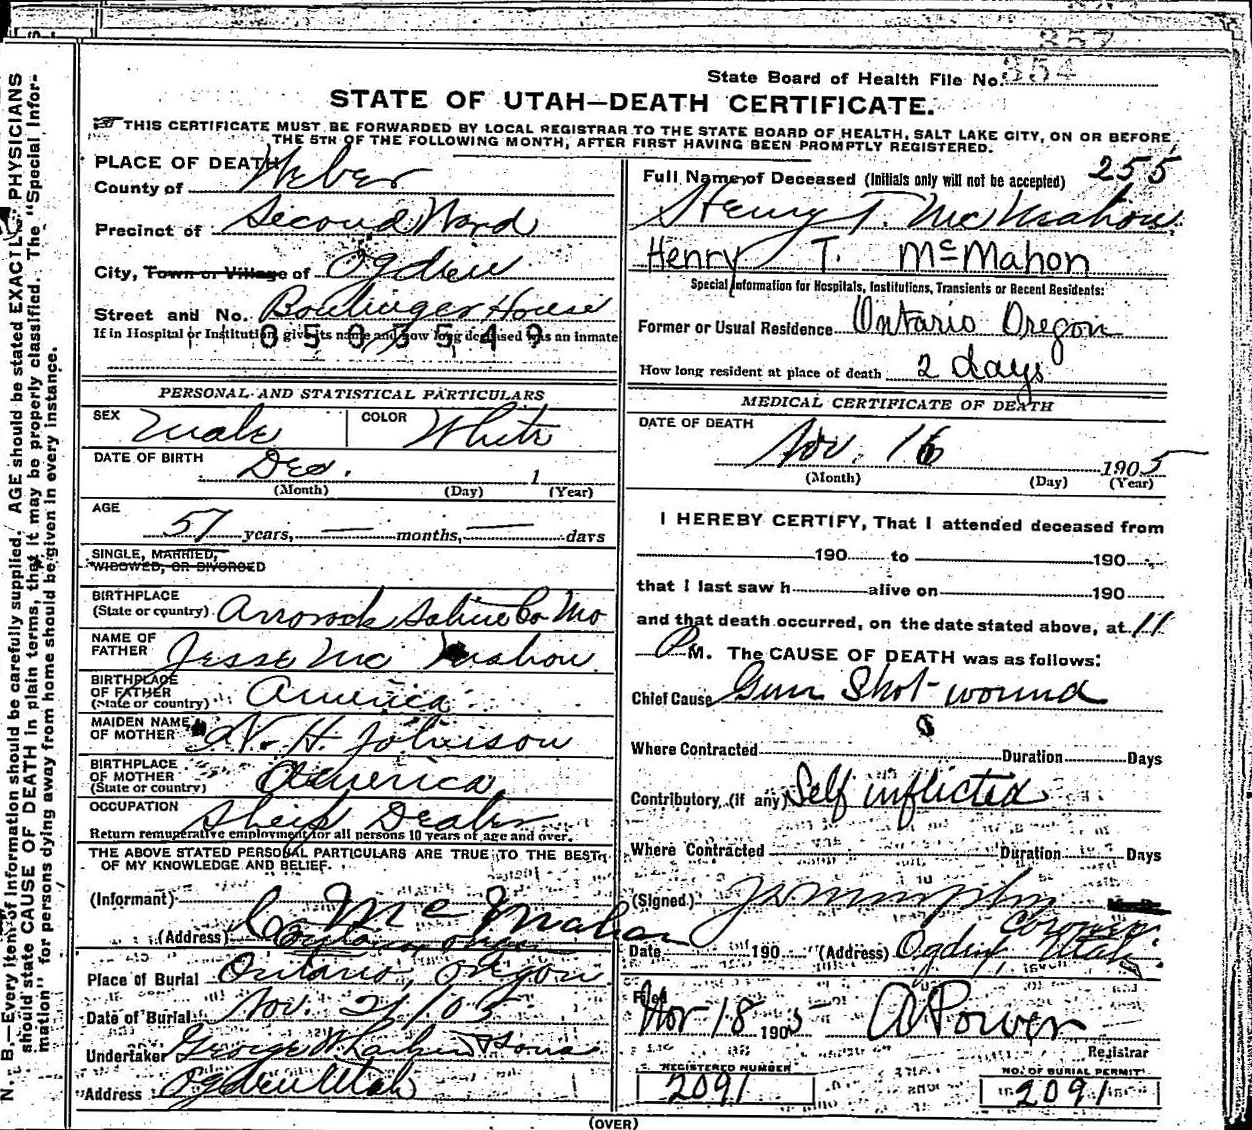 357
State Board of Health File No. 354
STATE OF UTAH—DEATH CERTIFICATE.
THIS CERTIFICATE MUST BE FORWARDED BY LOCAL REGISTRAR TO THE STATE BOARD OF HEALTH, SALT LAKE CITY, ON OR BEFORE
THE 5TH OF THE FOLLOWING MONTH, AFTER FIRST HAVING BEEN PROMPTLY REGISTERED.
N. B.—Every item of information should be carefully supplied. AGE should be stated EXACTLY. PHYSICIANS
should state CAUSE OF DEATH in plain terms, that it may be properly classified. The "Special Infor-
mation" for persons dying away from home should be given in every instance.
PLACE OF DEATH
County of Weber
Precinct of Second Ward
City, Town or Village of Ogden
Street and No. House
If in Hospital or Institution, give its name and how long deceased was an inmate
0503549
PERSONAL AND STATISTICAL PARTICULARS
SEX Male COLOR White
DATE OF BIRTH Dec. 1
(Month) (Day) (Year)
AGE
57 years, — months, — days
SINGLE, MARRIED,
WIDOWED, OR DIVORCED
BIRTHPLACE
(State or country) Arrorock Saline Co Mo
NAME OF
FATHER Jesse McMahon
BIRTHPLACE
OF FATHER
(State or country) America
MAIDEN NAME
OF MOTHER N. H. Johnison
BIRTHPLACE
OF MOTHER
(State or country) America
OCCUPATION Sheep Dealer
Return remunerative employment for all persons 10 years of age and over.
THE ABOVE STATED PERSONAL PARTICULARS ARE TRUE TO THE BEST
OF MY KNOWLEDGE AND BELIEF.
(Informant) McMahan
(Address)
Place of Burial Ontario, Oregon
Date of Burial Nov. 21/05
Undertaker George W Larkin & Sons
Address Ogden Utah
255
Full Name of Deceased (Initials only will not be accepted)
Henry T. McMahon
Henry T. McMahon
Special Information for Hospitals, Institutions, Transients or Recent Residents:
Former or Usual Residence Ontario Oregon
How long resident at place of death 2 days
MEDICAL CERTIFICATE OF DEATH
DATE OF DEATH
Nov. 16 1905
(Month) (Day) (Year)
I HEREBY CERTIFY, That I attended deceased from
190 to 190
that I last saw h alive on 190
and that death occurred, on the date stated above, at 11
P M. The CAUSE OF DEATH was as follows:
Chief Cause Gun Shot wound
Where Contracted Duration Days
Contributory, (if any) Self inflicted
Where Contracted Duration Days
(Signed)
Coroner.
Date 190 (Address) Ogden, Utah.
Filed
Nov 18 1905 A Power
Registrar
REGISTERED NUMBER
2091
NO. OF BURIAL PERMIT
2091
(OVER)